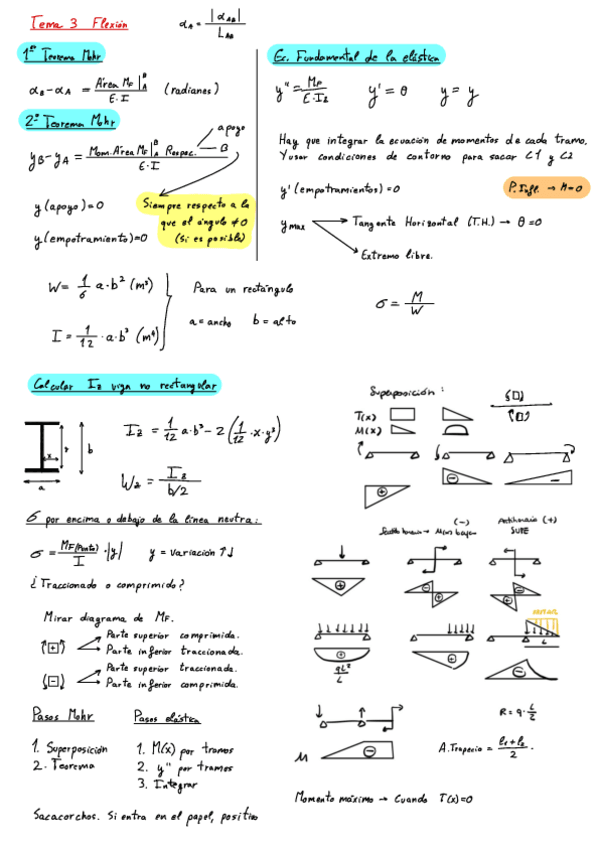 Tema 3 Flexión
α_A = |α_AB| / L_AB
1er Teorema Mohr
α_B - α_A = Área M_F |_A^B / E·I (radianes)
2º Teorema Mohr
apoyo
y_B - y_A = Mom. Área M_F |_A^B Respec. B / E·I
y (apoyo) = 0
y (empotramiento) = 0
Siempre respecto a la
que el ángulo ≠ 0
(si es posible)
Ec. Fundamental de la elástica
y'' = M_F / E·I_z y' = θ y = y
Hay que integrar la ecuación de momentos de cada tramo.
Y usar condiciones de contorno para sacar C1 y C2
y' (empotramientos) = 0
P. Infl. → M=0
y max → Tangente Horizontal (T.H.) → θ = 0
Extremo libre.
W = 1/6 a·b² (m³)
I = 1/12 · a·b³ (m⁴)
Para un rectángulo
a = ancho b = alto
σ = M / W
Calcular Iz viga no rectangular
x
y
b
a
I_z = 1/12 a·b³ - 2 (1/12 · x·y³)
W_z = I_z / b/2
σ por encima o debajo de la línea neutra:
σ = M_F(Punto) / I · |y| y = variación ↑↓
¿Traccionado o comprimido?
Mirar diagrama de M_F.
+
Parte superior comprimida.
Parte inferior traccionada.
-
Parte superior traccionada.
Parte inferior comprimida.
Pasos Mohr
1. Superposición
2. Teorema
Pasos elástica
1. M(x) por tramos
2. y'' por tramos
3. Integrar
Sacacorchos. Si entra en el papel, positivo
Superposición:
T(x)
M(x)
+ - -
(-)
Antihorario (+)
SUBE
+ + - + -
+ + -
L
R = q · L/2
M -
A. Trapecio = l₁ + l₂ / 2 ·
Momento máximo → Cuando T(x)=0